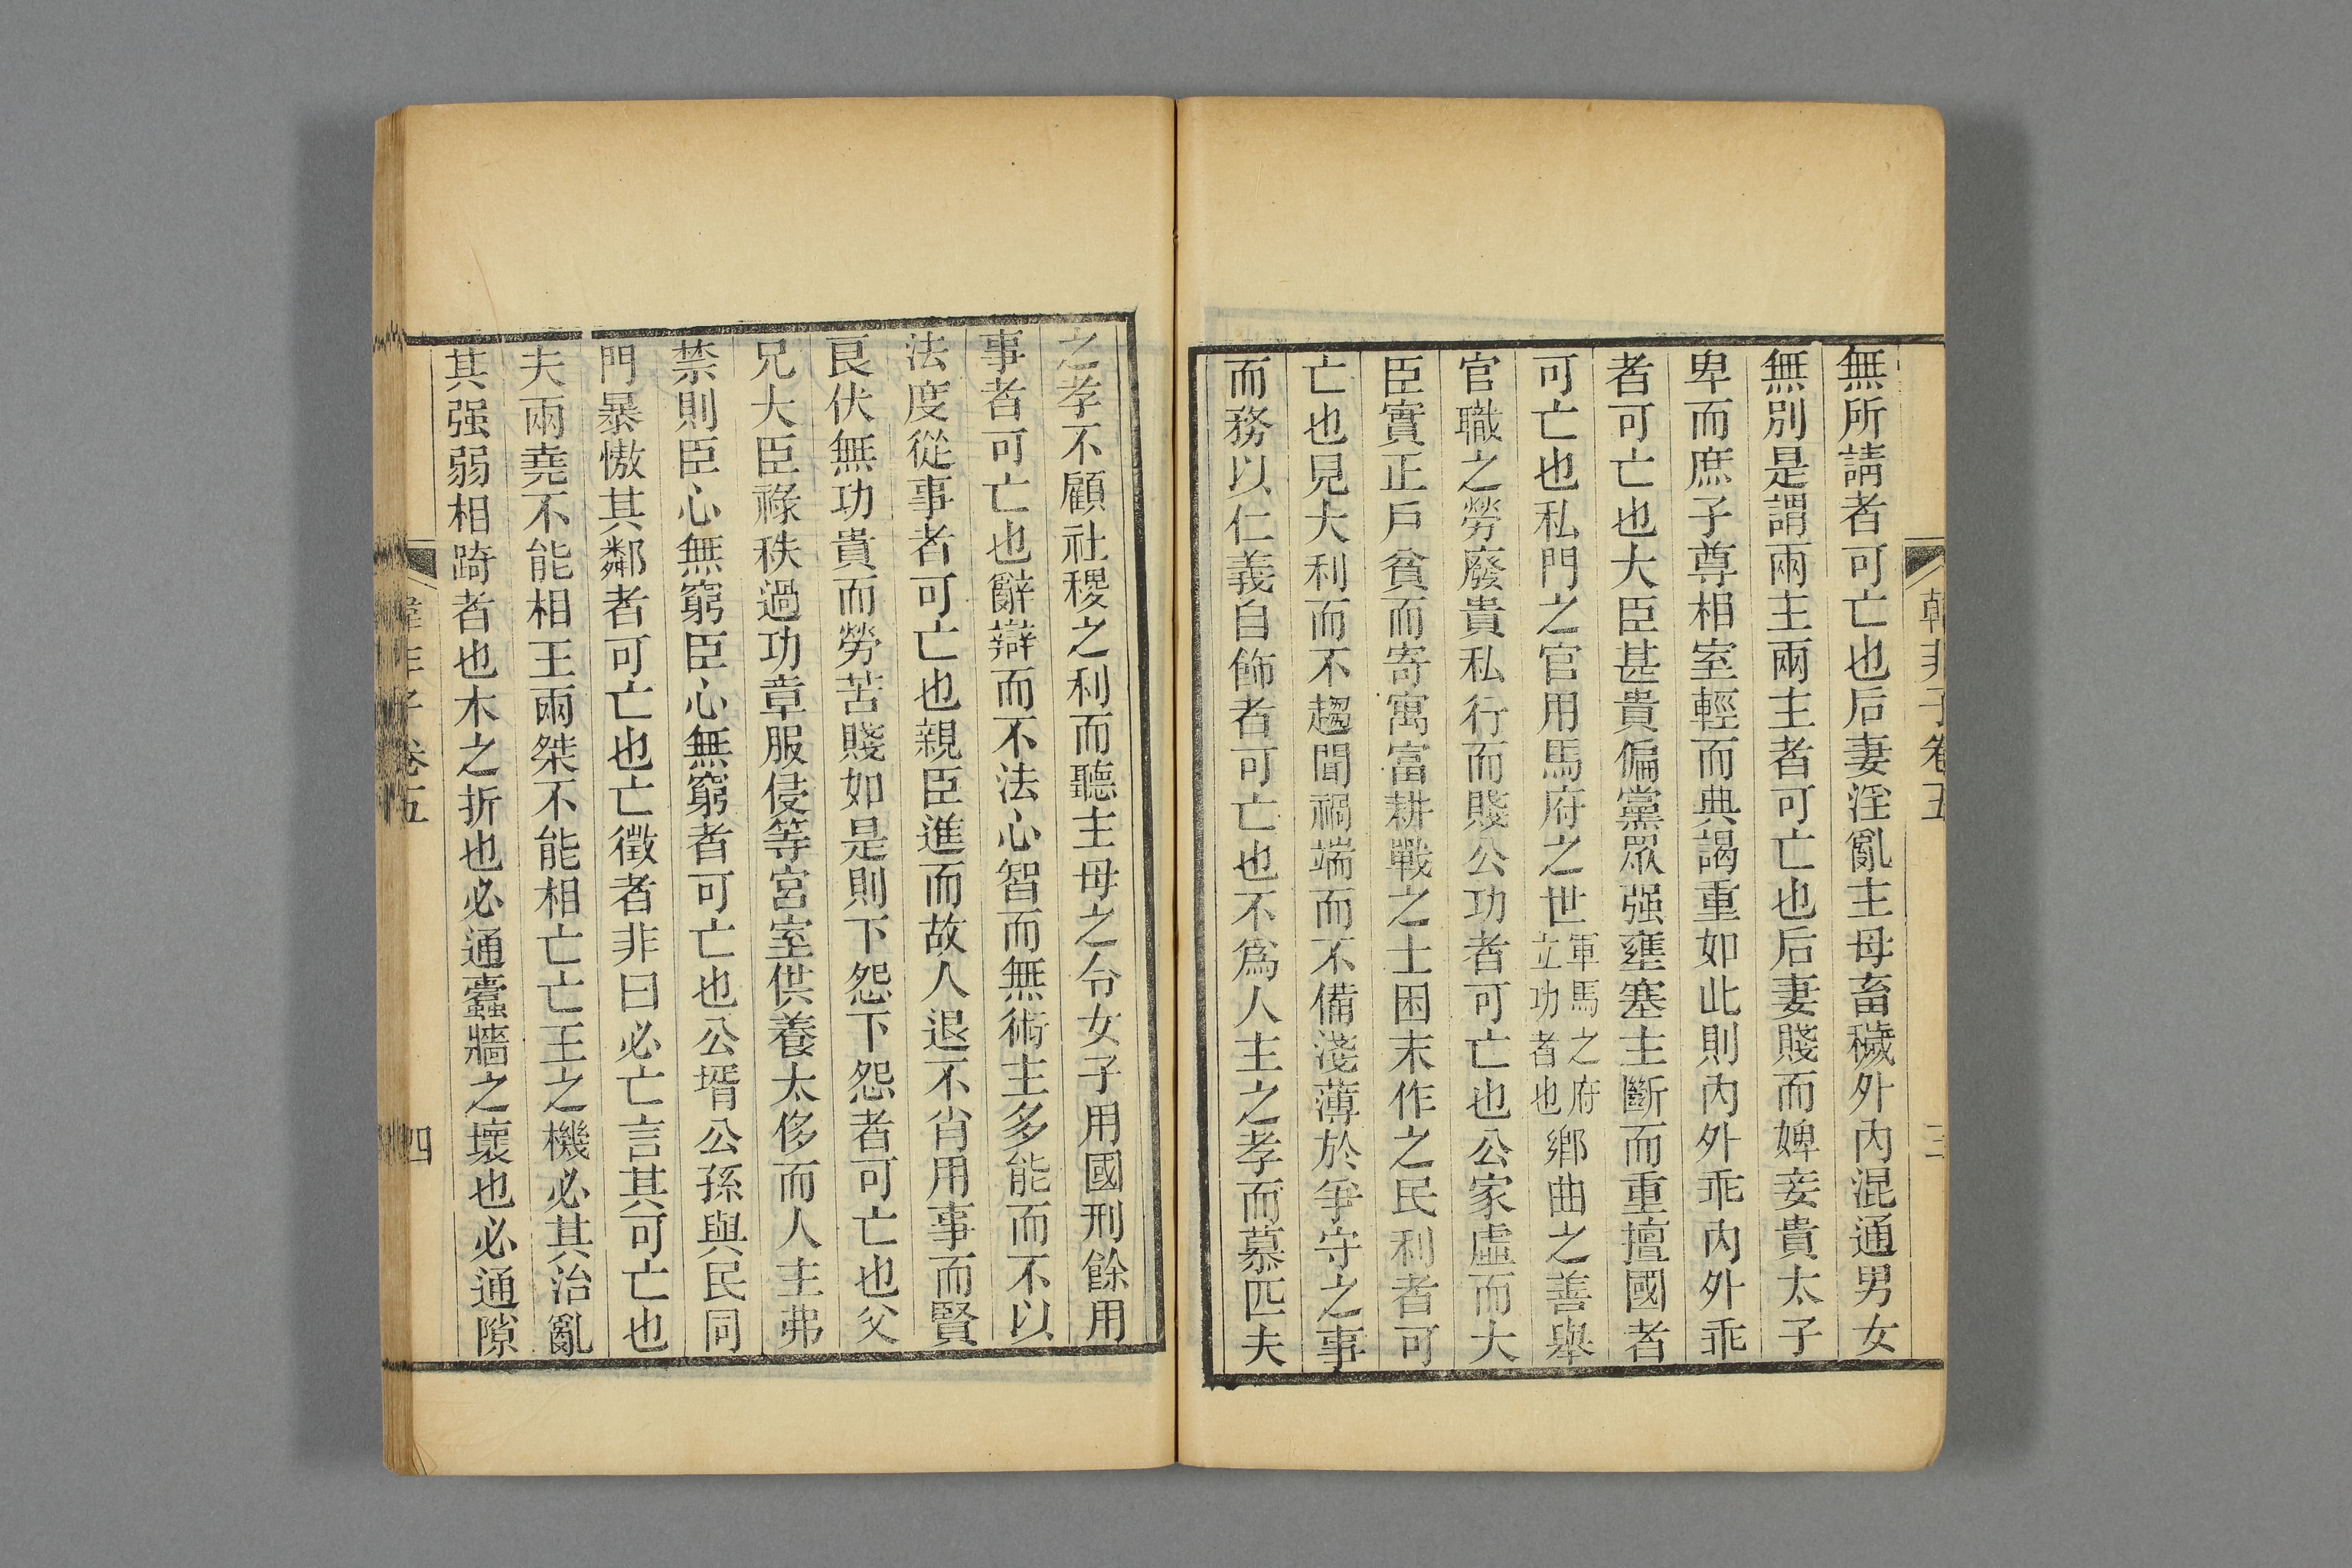 韓非子卷五
三
無所請者可亡也后妻淫亂主母畜穢外內混通男女
無別是謂兩主兩主者可亡也后妻賤而婢妾貴太子
卑而庶子尊相室輕而典謁重如此則內外乖內外乖
者可亡也大臣甚貴偏黨眾强壅塞主斷而重擅國者
可亡也私門之官用馬府之世軍馬之府立功者也鄉曲之善舉
官職之勞廢貴私行而賤公功者可亡也公家虛而大
臣實正戶貧而寄寓富耕戰之士困末作之民利者可
亡也見大利而不趨聞禍端而不備淺薄於爭守之事
而務以仁義自飾者可亡也不爲人主之孝而慕匹夫
之孝不顧社稷之利而聽主母之令女子用國刑餘用
事者可亡也辭辯而不法心智而無術主多能而不以
法度從事者可亡也親臣進而故人退不肖用事而賢
良伏無功貴而勞苦賤如是則下怨下怨者可亡也父
兄大臣祿秩過功章服侵等宮室供養太侈而人主弗
禁則臣心無窮臣心無窮者可亡也公壻公孫與民同
門暴慠其鄰者可亡也亡徵者非曰必亡言其可亡也
夫兩堯不能相王兩桀不能相亡亡王之機必其治亂
其强弱相踦者也木之折也必通蠹牆之壞也必通隙
韓非子卷五
四